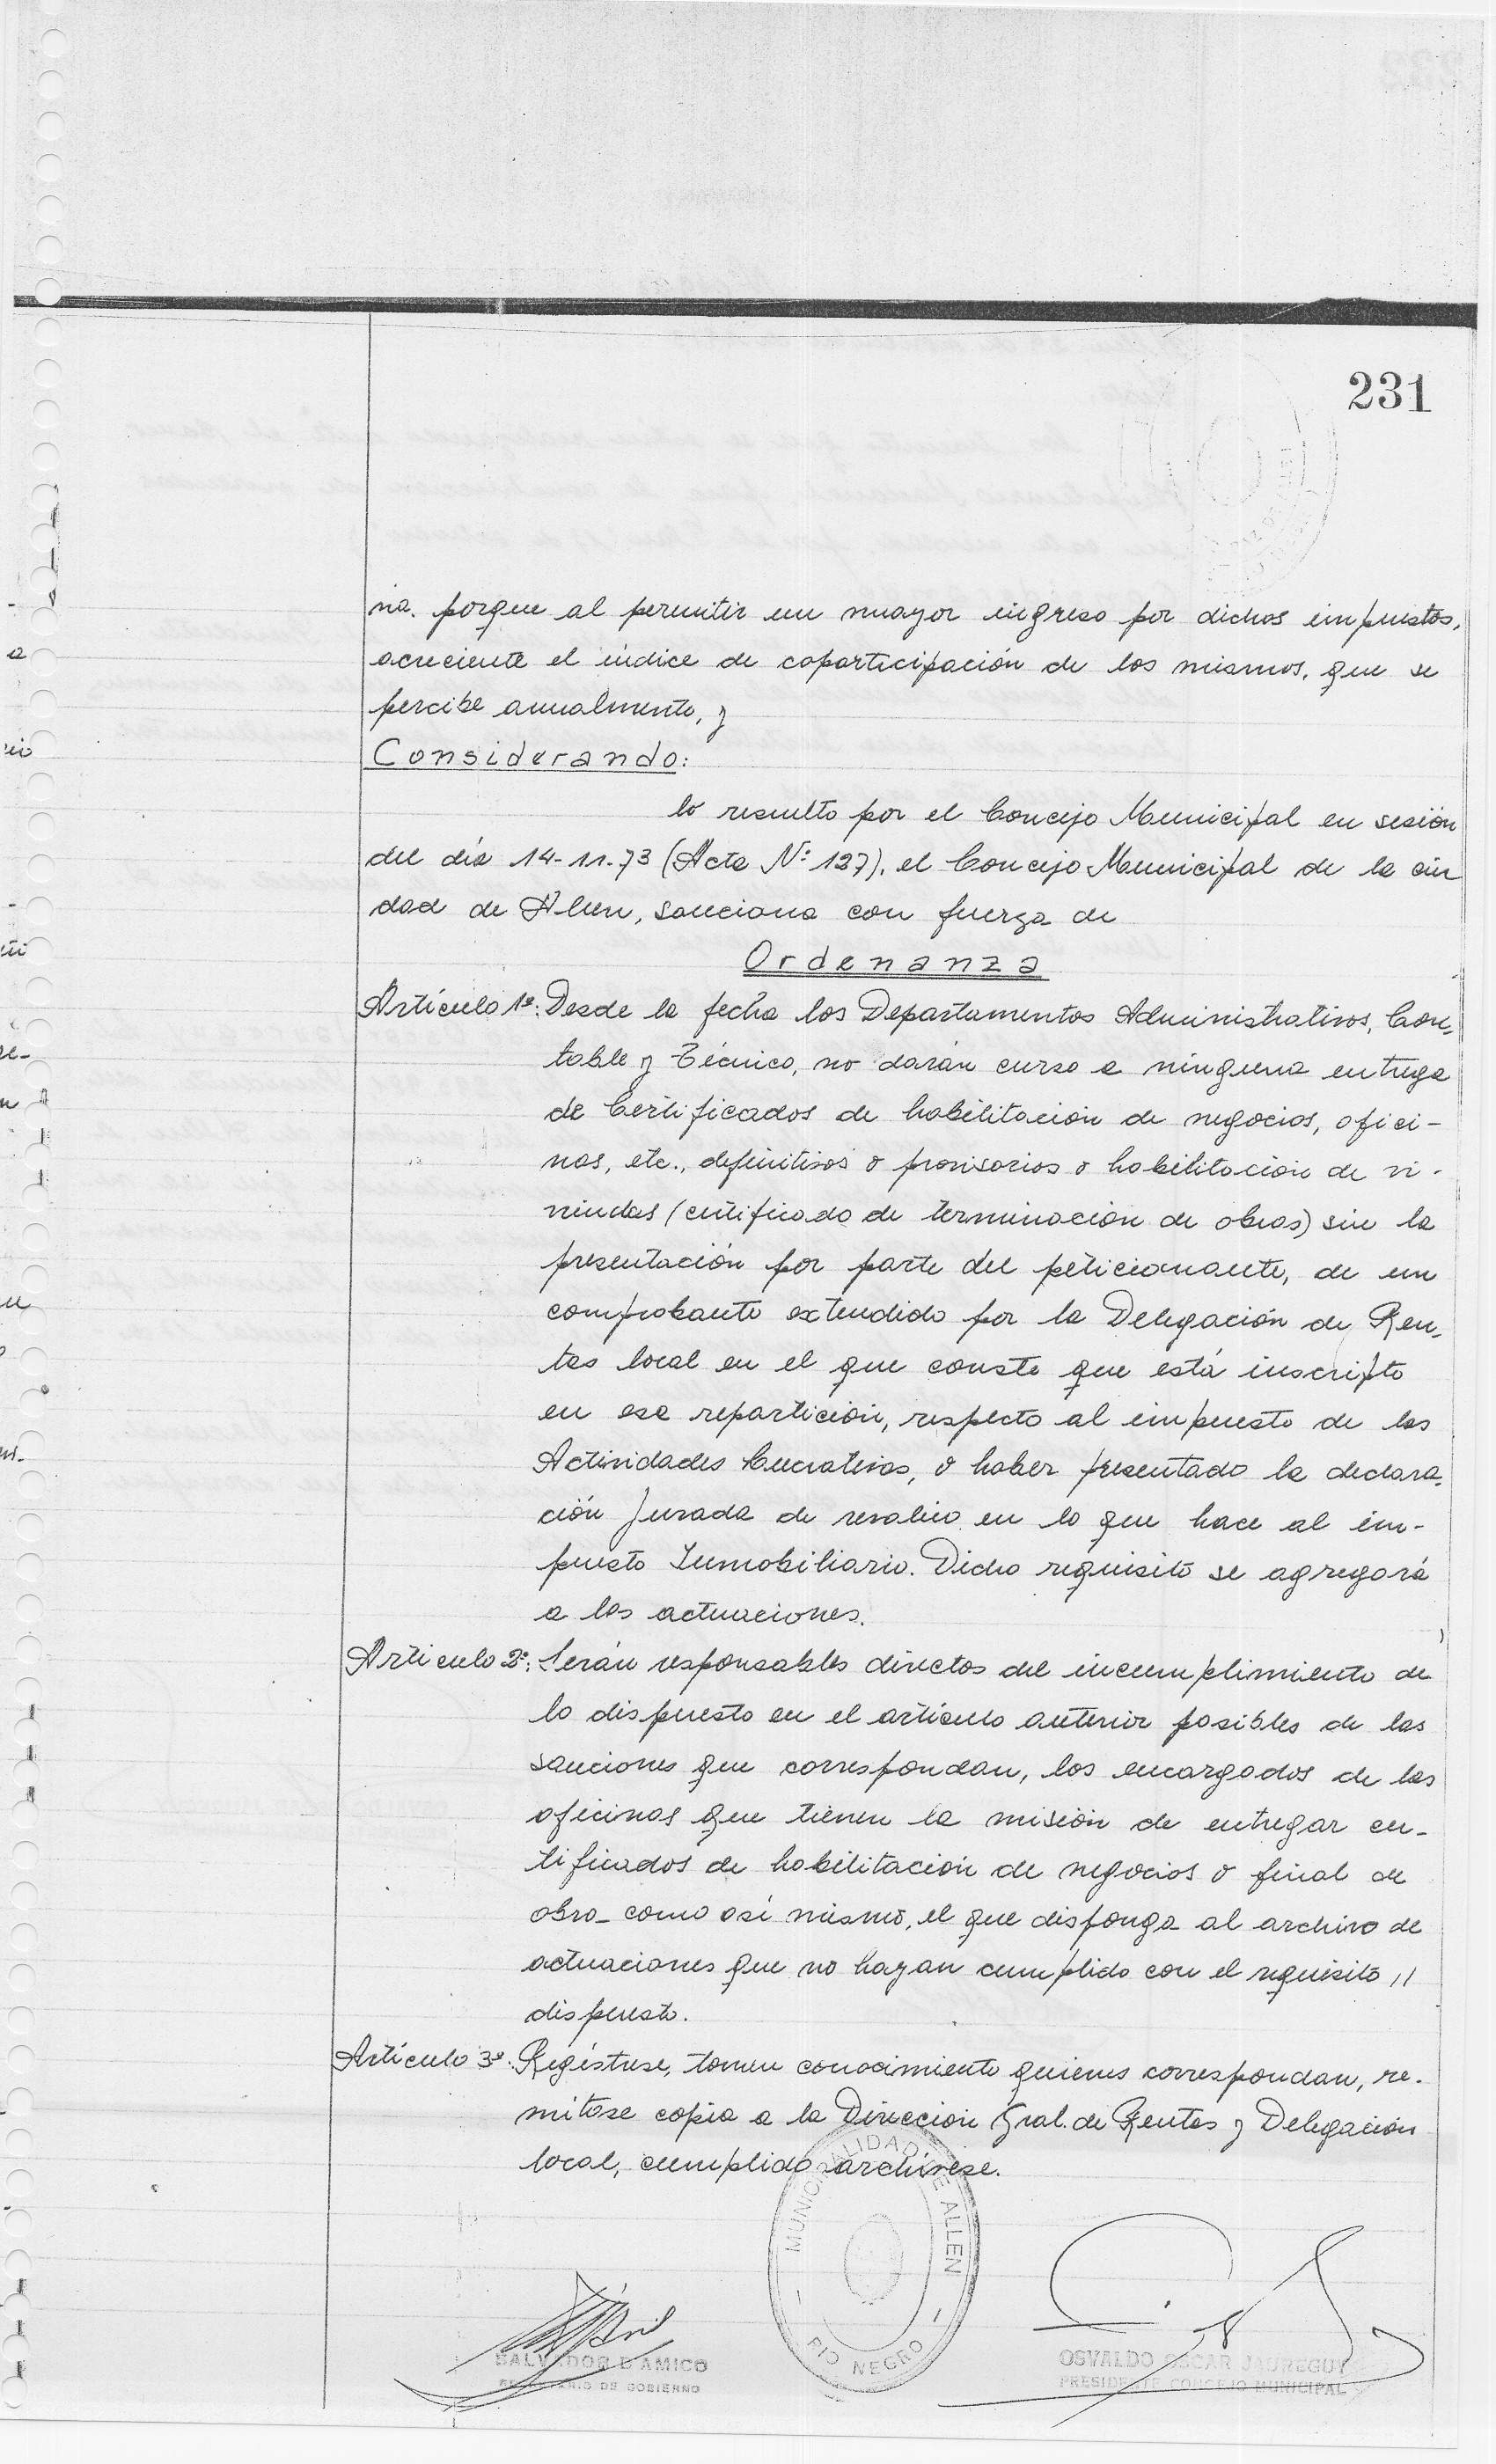 231
na. porque al permitir un mayor ingreso por dichos impuestos,
acreciente el índice de coparticipación de los mismos, que se
percibe anualmente, y
Considerando:
lo resuelto por el Concejo Municipal en sesión
del día 14-11-73 (Acta Nº 127), el Concejo Municipal de la ciu
dad de Allen, sanciona con fuerza de
Ordenanza
Artículo 1º: Desde la fecha los Departamentos Administrativos, Con-
table y Técnico, no darán curso a ninguna entrega
de Certificados de habilitación de negocios, ofici-
nas, etc., definitivos o provisorios o habilitación de vi-
viendas (certificado de terminación de obras) sin la
presentación por parte del peticionante, de un
comprobante extendido por la Delegación de Ren-
tas local en el que conste que está inscripto
en esa repartición, respecto al impuesto de las
Actividades Lucrativas, o haber presentado la declara-
ción Jurada de revalúo en lo que hace al im-
puesto Inmobiliario. Dicho requisito se agregará
a las actuaciones.
Artículo 2º: Serán responsables directos del incumplimiento de
lo dispuesto en el artículo anterior pasibles de las
sanciones que correspondan, los encargados de las
oficinas que tienen la misión de entregar cer-
tificados de habilitación de negocios o final de
obra_ como así mismo, el que disponga al archivo de
actuaciones que no hayan cumplido con el requisito //
dispuesto.
Artículo 3º: Regístrese, tomen conocimiento quienes correspondan, re-
mítase copia a la Dirección Gral. de Rentas y Delegación
local, cumplido archívese.
MUNICIPALIDAD DE ALLEN
RIO NEGRO
SALVADOR D'AMICO
SECRETARIO DE GOBIERNO
OSVALDO OSCAR JAUREGUY
PRESIDENTE CONCEJO MUNICIPAL